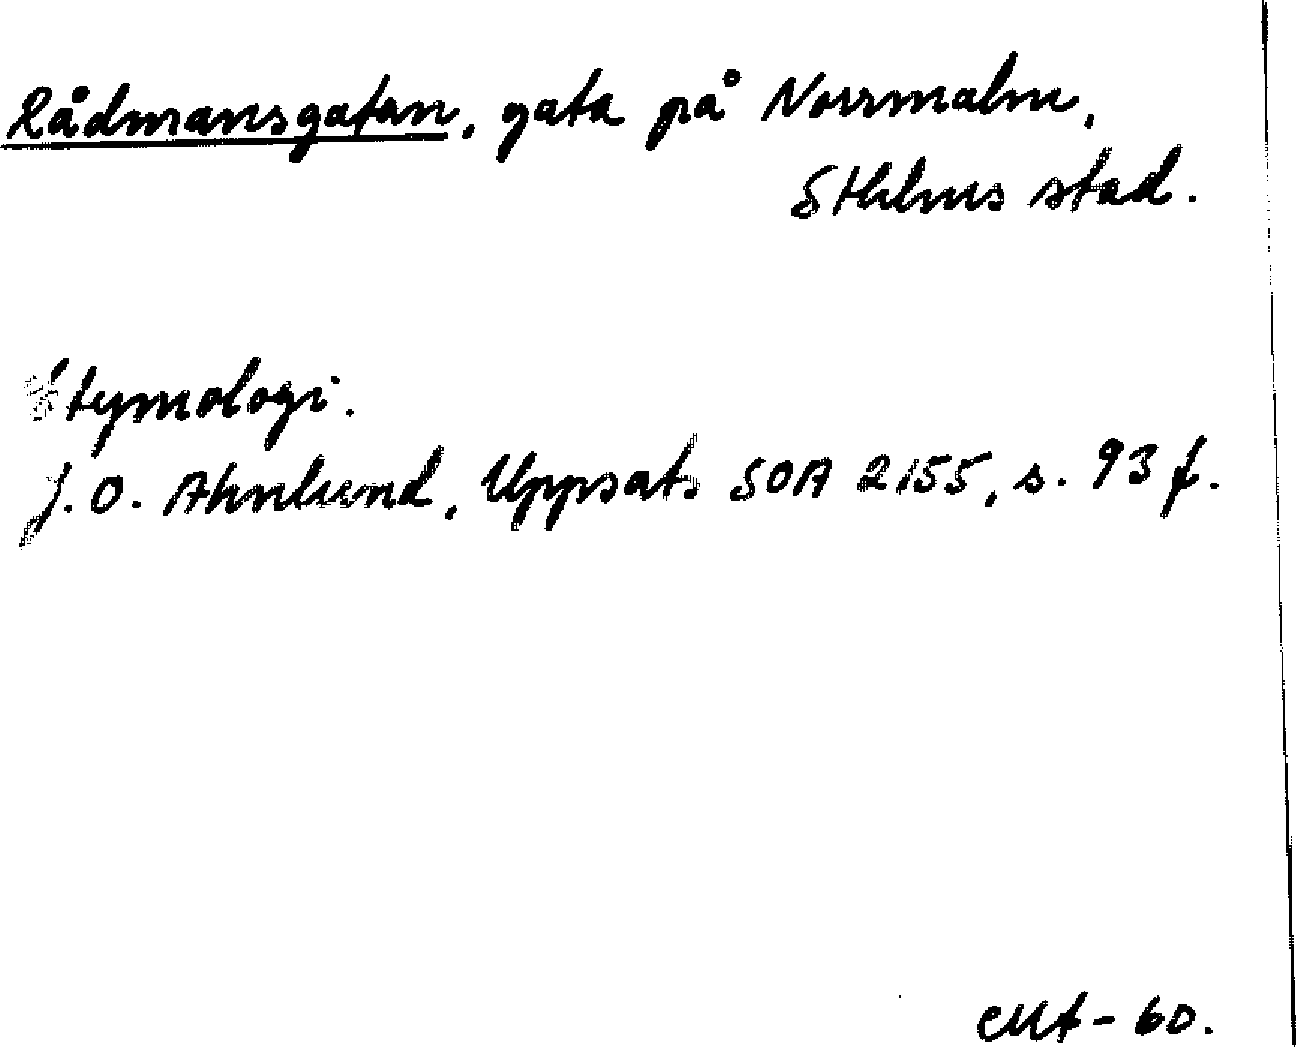 Rådmansgatan, gata på Norrmalm,
Sthlms stad.
Etymologi.
J.O. Ahnlund, Uppsats SOA 2155, s. 93 f.
-60.